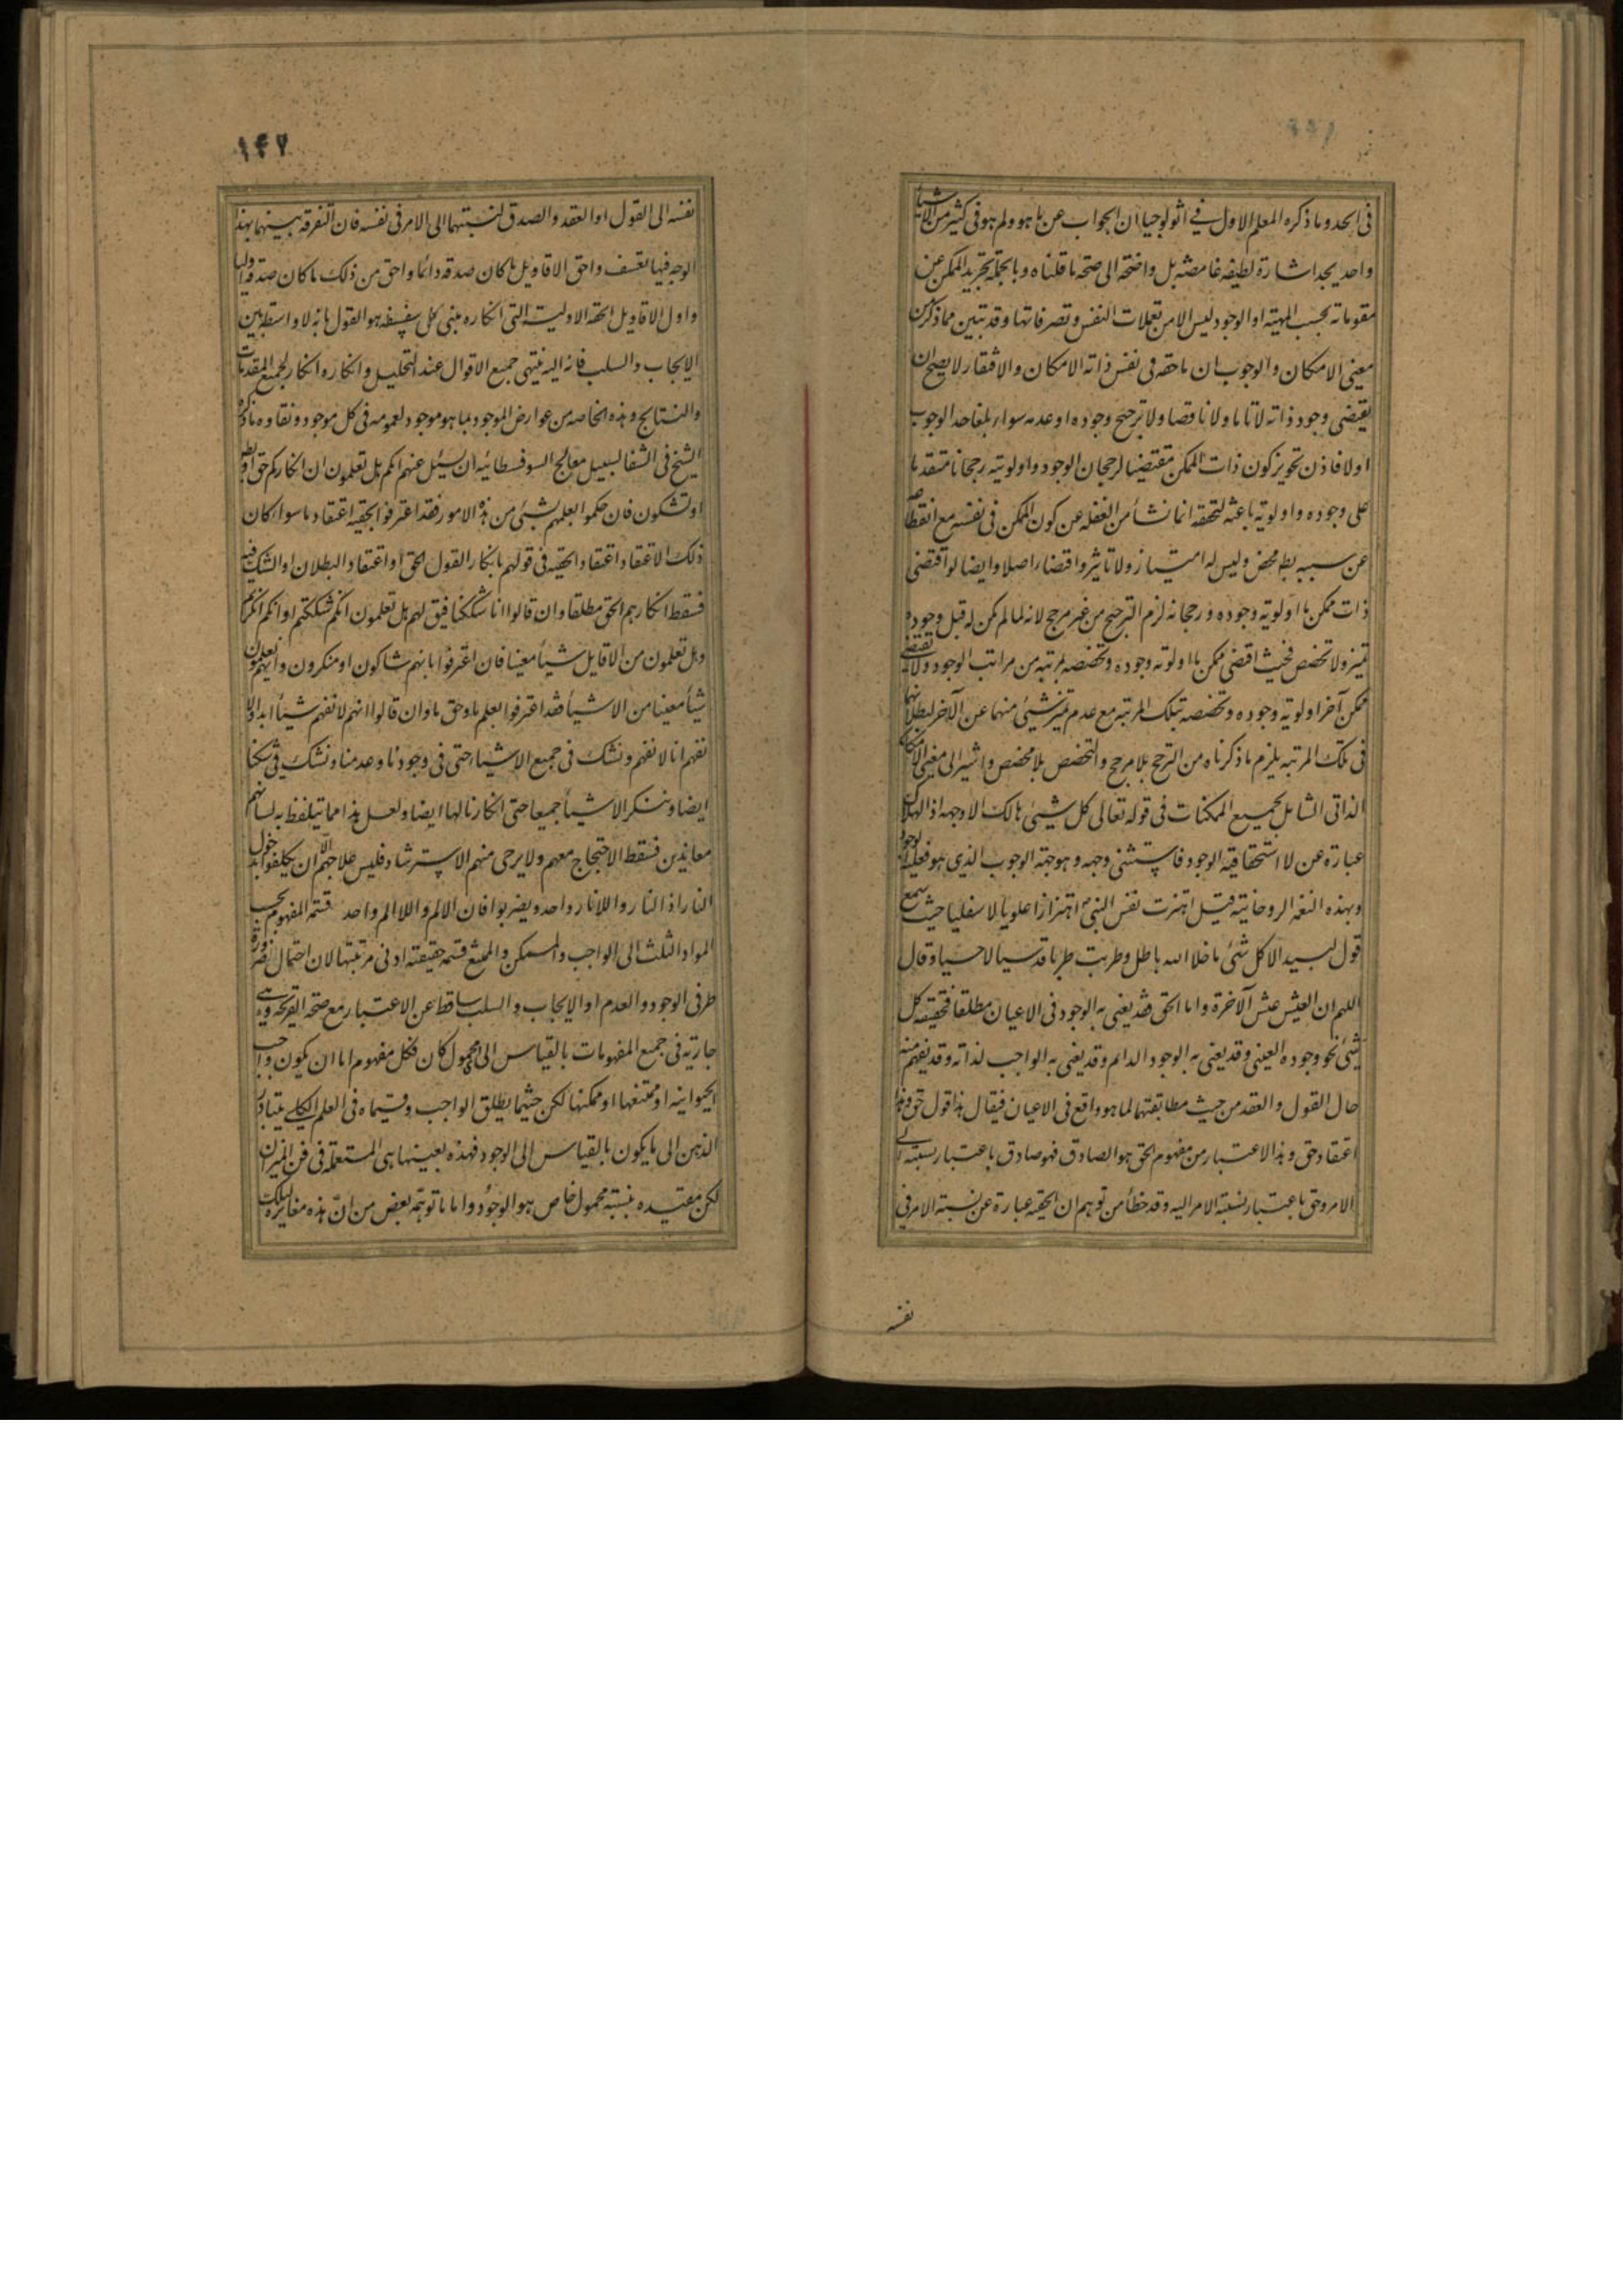 فی الحد وما ذكره المعلم الاول فی اثولوجیا ان الجواب عن ما هو ولم هو فی كثیر من الاشیاء
واحد یجد اشارة لطیفه غامضه بل واضحه الی صحه ما قلناه و بالجمله تجرید الممكن عن
مقوماته بحسب المهیته او الوجود لیس الا من تعملات النفس و تصرفاتها وقد تبین مما ذكر من
معنی الامكان و الوجوب ان ما حقه فی نفس ذاته الامكان والافتقار لا یصح ان
یقتضی وجود ذاته لا تاما ولا ناقصا ولا ترجح وجوده او عدمه سواء بلغا حد الوجوب
اولا فاذن تجویز كون ذات الممكن مقتضیا لرجحان الوجود واولویته رجحانا متقدما
علی وجوده واولویة باعثه لتحققه انما نشأ من الغفله عن كون الممكن فی نفسه مع انقطاعه
عن سببه بط محض ولیس له امتیاز ولا تاثیر واقتضاء اصلا وایضا لو اقتضی
ذات ممكن ما اولویه وجوده ورجحانه لزم الترجیح من غیر مرجح لانه لما لم یكن له قبل وجوده
تمیز ولا تخصص فحیث اقتضی ممكن ما اولویه وجوده وتخصصه بمرتبه من مراتب الوجود ولا یقتضی
ممكن آخر اولویه وجوده وتخصصه بتلك المرتبه مع عدم تمیز شیئی منهما عن الآخر لبطلانهما
فی تلك المرتبه یلزم ما ذكرناه من الترجیح بلا مرجح والتخصص بلا مخصص واشیر الی معنی الامكان
الذاتی الشامل لجمیع الممكنات فی قوله تعالی كل شیئی هالك الا وجهه اذ الهلاك
عبارة عن لا استحقاقیة الوجود فاستثنی وجهه وهو جهة الوجوب الذی هو فعلیة الوجود
وبهذه النغمه الروحانیه قیل اهتزت نفس النبی اهتزازا علویا لا سفلیا حیث سمع
قول لبید الا كل شئ ما خلا الله باطل وطربت طربا قدسیا لا حسیا وقال
اللهم ان العیش عیش الآخرة واما الحق فقد یعنی به الوجود فی الاعیان مطلقا فحقیقه كل
شئ نحو وجوده العینی وقد یعنی به الوجود الدائم وقد یعنی به الواجب لذاته وقد یفهم منه
حال القول والعقد من حیث مطابقتهما لما هو واقع فی الاعیان فیقال هذا قول حق وهذا
اعتقاد حق وهذا الاعتبار من مفهوم الحق هو الصادق فهو صادق باعتبار نسبته الی
الامر وحق باعتبار نسبة الامر الیه وقد خطأ من توهم ان الحقیه عبارة عن نسبة الامر فی
نفسه
۱۴۲
نفسه الی القول او العقد والصدق لنسبتهما الی الامر فی نفسه فان التفرقه بینهما بهذا
الوجه فیها تعسف واحق الاقاویل ما كان صدقه دائما واحق من ذلك ما كان صدقه اولیا
واول الاقاویل الحقه الاولیه التی انكاره مبنی كل سفسطه هو القول بانه لا واسطه بین
الایجاب والسلب فانه الیه ینتهی جمیع الاقوال عند التحلیل وانكاره انكار لجمیع المقدمات
والنتایج وهذه الخاصه من عوارض الموجود بما هو موجود لعمومه فی كل موجود ونقاوه ما ذكره
الشیخ فی الشفا لسبیل معالج السوفسطائیه ان یسئل عنهم انكم هل تعلمون ان انكاركم حق او بط
او تشكون فان حكموا بعلمهم بشیئی من هذه الامور فقد اعترفوا بحقیه اعتقاد ما سواء كان
ذلك الاعتقاد اعتقاد الحقیه فی قولهم بانكار القول الحق او اعتقاد البطلان او الشك فیه
فسقط انكارهم الحق مطلقا وان قالوا انا شككنا فیق لهم هل تعلمون انكم شككتم او انكم انكرتم
وهل تعلمون من الاقایل شیأ معینا فان اعترفوا بانهم شاكون او منكرون وانهم یعلمون
شیأ معینا من الاشیأ فقد اعترفوا بعلم ما وحق ما وان قالوا انهم لا نفهم شیأ ابدا ولا
نفهم انا لا نفهم ونشك فی جمیع الاشیاء حتی فی وجودنا وعدمنا ونشك فی شكنا
ایضا وننكر الاشیأ جمیعا حتی انكارنا لها ایضا ولعل هذا مما یتلفظ به لسانهم
معاندین فسقط الاحتجاج معهم ولا یرجی منهم الاسترشاد فلیس علاجهم الا ان یكلفوا بدخول
النار اذ النار واللانار واحد ویضربوا فان الالم واللاالم واحد قسمة المفهوم بحسب
المواد الثلث الی الواجب والممكن والممتنع قسمه حقیقته ادنی مرتبتها لان احتمال ضرورة
طرفی الوجود والعدم او الایجاب والسلب ساقط عن الاعتبار مع صحة القریحه وهی
جاریة فی جمیع المفهومات بالقیاس الی ای محمول كان فكل مفهوم اما ان یكون واجب
الحیوانیه او ممتنعها او ممكنها لكن حیثما یطلق الواجب وقسیماه فی العلم الكلی یتبادر
الذهن الی ما یكون بالقیاس الی الوجود فهذه بعینها هی المستعمله فی فن المیزان
لكن مقیده بنسبة محمول خاص هو الوجود واما ما توهمه بعض من ان هذه مغایرة لتلك